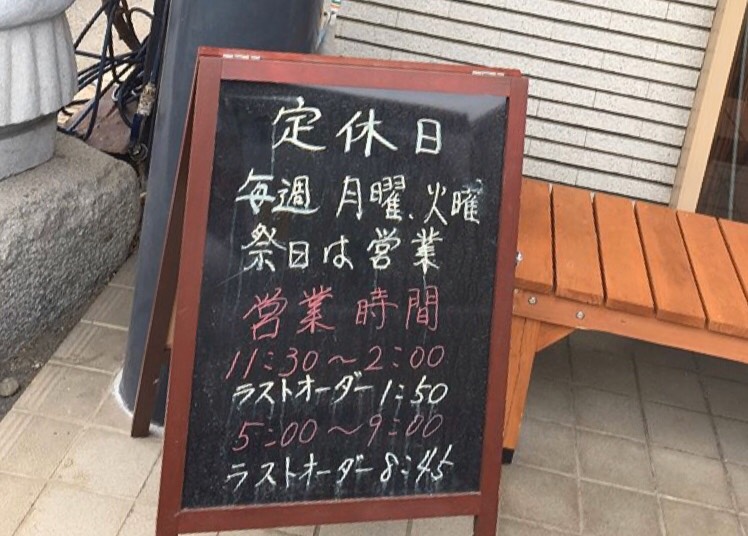 定休日
毎週 月曜、火曜
祭日は営業
営業時間
11:30～2:00
ラストオーダー1:50
5:00～9:00
ラストオーダー8:45